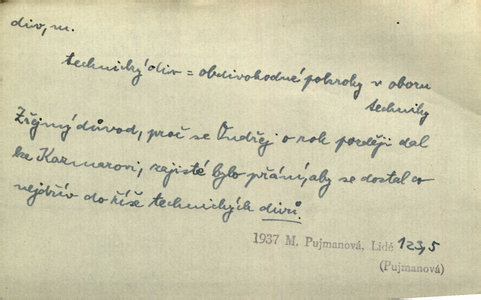 div, m.
technický div = obdivuhodné pokroky v oboru
techniky
Zřejmý důvod, proč se Ondřej o rok později dal
ke Kazmarovi, zajisté bylo přání, aby se dostal co
nejdřív do říše technických divů.
1937 M. Pujmanová, Lidé 123,5
(Pujmanová)